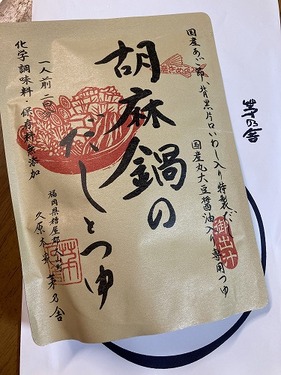 国産あご節、背黒片口いわし入り特製だし
国産丸大豆醤油入り専用つゆ
御出汁
胡麻鍋の
だしとつゆ
一人前
化学調味料・保存料無添加
福岡県糟屋郡
久原本家 茅乃舎
茅乃舎